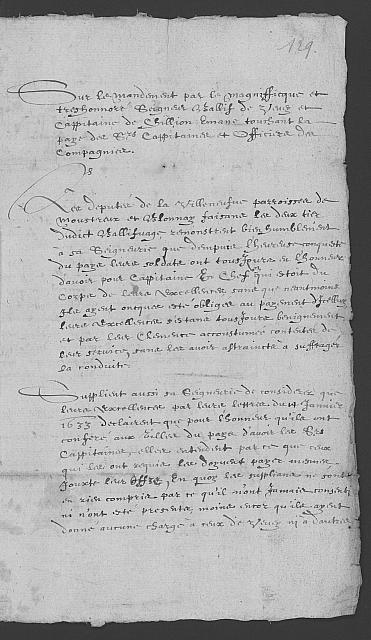 129.
Sur le mandement par le magnifficque et
treshonnoré Seigneur Ballif de Vevey et
Cappitaine de Chillion Emané touchant la
paye des Srs Cappitaines et Officiers des
Compagnies.
Les deputez de la Villeneufve parroisses de
Moustreux et Blonnay faisans les deux tier
dudict Balliage remonstrent bien humblement
a sa Seigneurie que dempuis l'heureuse conqueste
du pays leurs soldats ont tousjours eu l'honneur
d'avoir pour Cappitaine En Chef qui estoit du
Corps de leurs Excellences sans que neantmoins
Ilz ayent oncques esté obligés au payement d'Iceluy
leurs Excellences s'estans tousjours benignement
et par leur Clemence accoustumée contentées de
leur service, sans les avoir astraincts a
la conduite.
Supplient aussi sa Seigneurie de considerer que
leurs Excellences par leurs lettres du Janvier
1633 declairent que pour l'honneur qu'ils ont
conferé aux du pays d'avoir les Srs
Cappitaines, elles entendent par ce que ceux
qui les ont requis les doyvent payer
jouxte leur offre, En quoy les supplians ne sont
en rien compris par ce qu'il n'ont jamais consenti
ni n'ont esté presents, moins encor qu'ils ayent
donné aucune charge a ceux de Vevey ni d'autres